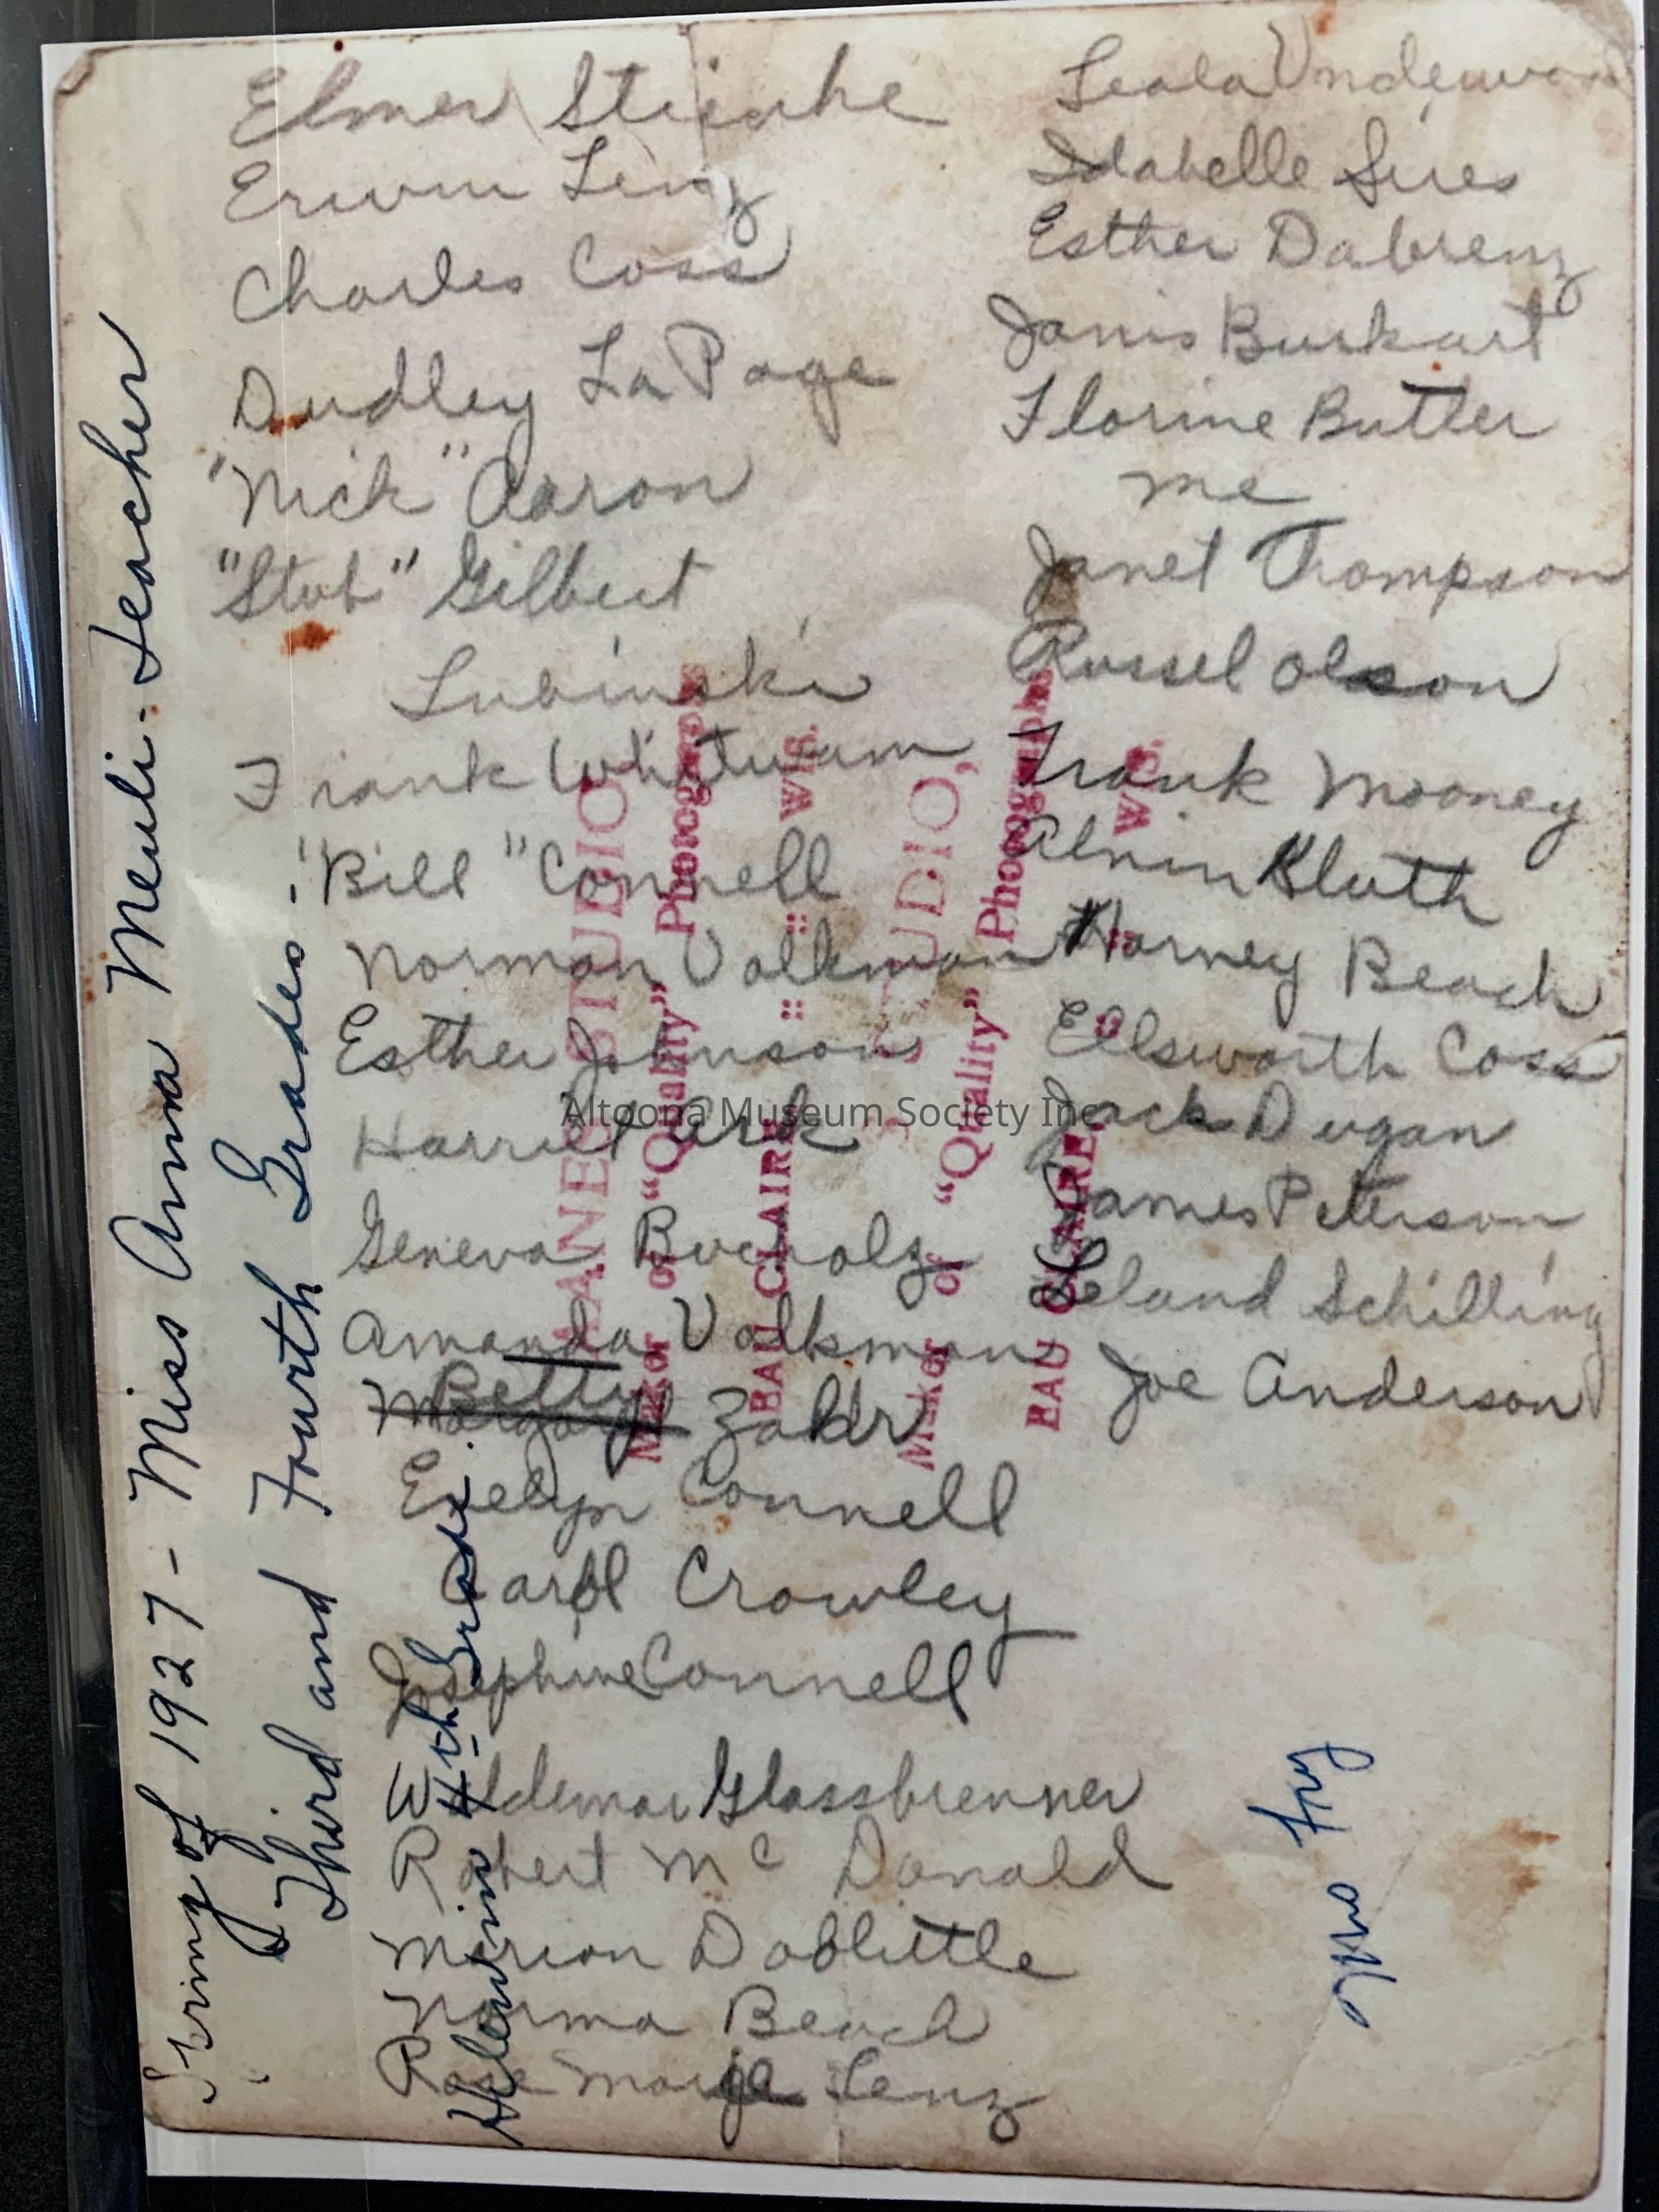 Spring of 1927 - Miss Anna Meuli - Teacher
Third and Fourth Grades.
Elmer
Erwin Lenz
Charles Coss
Dudley La Page
"Nick" Aaron
"Stub" Gilbert
Lubinski
Frank Whitwam
"Bill" Connell
Norman Volkman
Esther Johnson
Harriet Park
Geneva Bucholz
Amanda Volkman
Betty
Margaret Zahr
Evelyn Connell
Carol Crowley
Josephine Connell
Waldemar Glassbrenner
Robert Mc Donald
Mirion Doolittle
Norma Beach
Rose Marie Lenz
4th Grade.
Leala Underwood
Idabelle Sires
Esther Dabrenz
Janis Burkart
Florine Butler
me
Janet Thompson
Russel Olson
Frank Mooney
Alvin Kluth
Harney Beach
Ellsworth Coss
Jack Dugan
James Peterson
Leland Schilling
Joe Anderson
Fry
STUDIO,
Maker of "Quality" Photographs
EAU CLAIRE, :: :: WIS.
STUDIO,
Maker of "Quality" Photographs
EAU CLAIRE, :: :: WIS.
Altoona Museum Society Inc